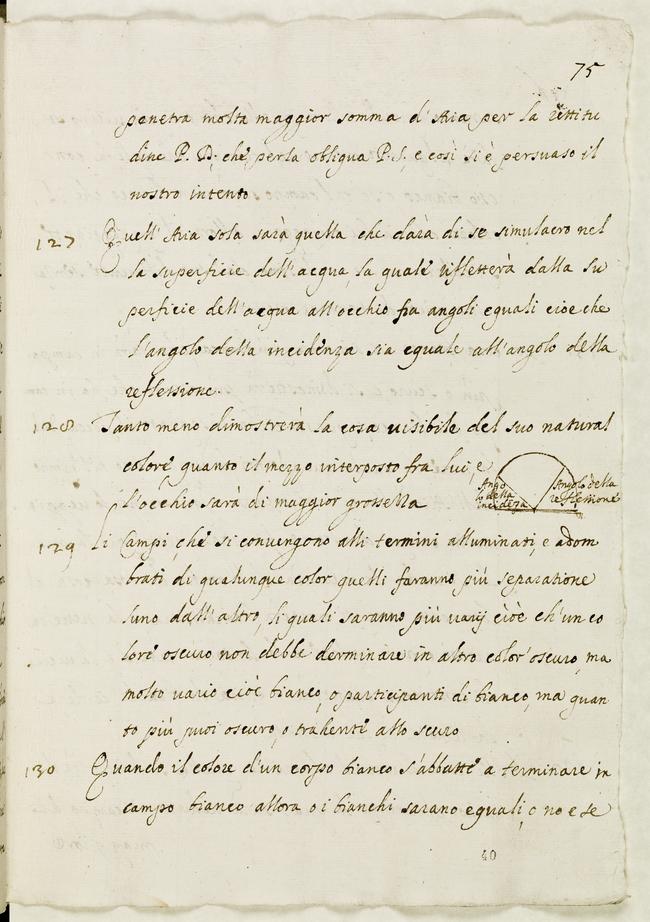 75
penetra molta maggior somma d'Aria per la rettitu
dine P. D. che per la obligua P. S. e così si è persuaso il
nostro intento
127 Quell'Aria sola sarà quella che darà di se simulacro nel
la superficie dell'acqua, la quale rifletterà dalla su
perficie dell'acqua all'occhio fra angoli eguali cioè che
l'angolo della incidenza sia eguale all'angolo della
reflessione.
128 Tanto meno dimostrerà la cosa visibile del suo natural
colore, quanto il mezzo interposto fra lui, e
l'occhio sarà di maggior grossezza
Ango
lo della
incideza
Angolo della
reflessione
129 Li Campi, che si convengono alli termini alluminati, e adom
brati di qualunque color quelli faranno più separatione
l'uno dall'altro, li quali saranno più varij cioè ch'un co
lore oscuro non debbe derminare in altro color oscuro, ma
molto vario cioè bianco, o participanti di bianco, ma quan
to più puoi oscuro, o trahente allo scuro
130 Quando il colore d'un corpo bianco s'abbatte a terminare in
campo bianco allora o i bianchi sarano eguali, o no e se
40